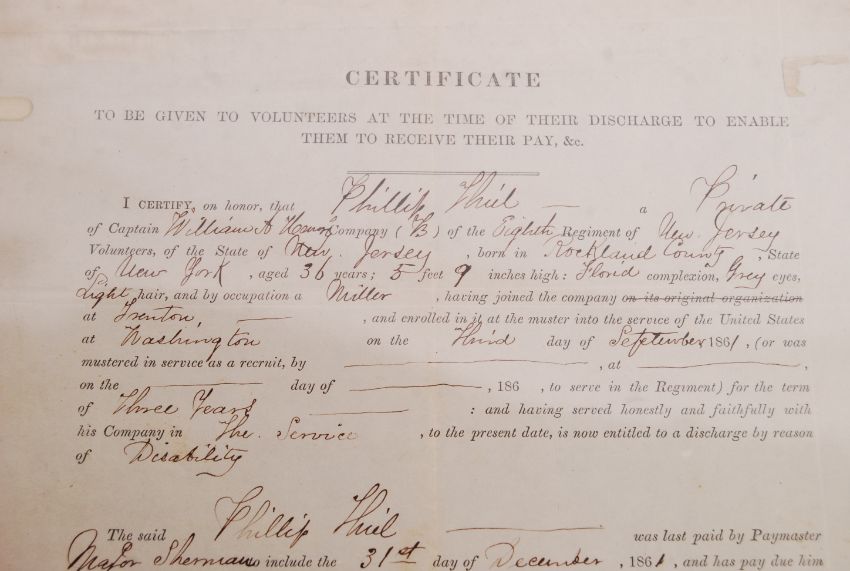 CERTIFICATE
TO BE GIVEN TO VOLUNTEERS AT THE TIME OF THEIR DISCHARGE TO ENABLE
THEM TO RECEIVE THEIR PAY, &c.
I CERTIFY, on honor, that Phillip Thiel — a Private
of Captain William A Company (B) of the Eighth Regiment of New Jersey
Volunteers, of the State of New Jersey, born in Rockland County, State
of New York, aged 36 years; 5 feet 9 inches high: Florid complexion, Grey eyes,
Light hair, and by occupation a Miller, having joined the company on its original organization
at Trenton, —, and enrolled in it at the muster into the service of the United States
at Washington on the Third day of September 1861, (or was
mustered in service as a recruit, by —, at —,
on the — day of —, 186 , to serve in the Regiment) for the term
of Three Years — : and having served honestly and faithfully with
his Company in The Service, to the present date, is now entitled to a discharge by reason
of Disability
The said Phillip Thiel — was last paid by Paymaster
Major Sherman to include the 31st day of December, 1861, and has pay due him